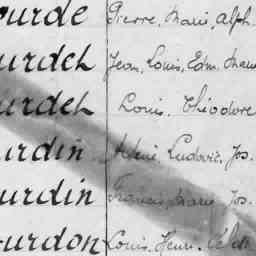 ourde Pierre, Marie, Alph.
urdel Jean, Louis, Edm. Marie
urdel Louis, Théodore
urdin Ludovic, Jos.
urdin Francis, Marie, Jos.
ourdon Louis, Henri,